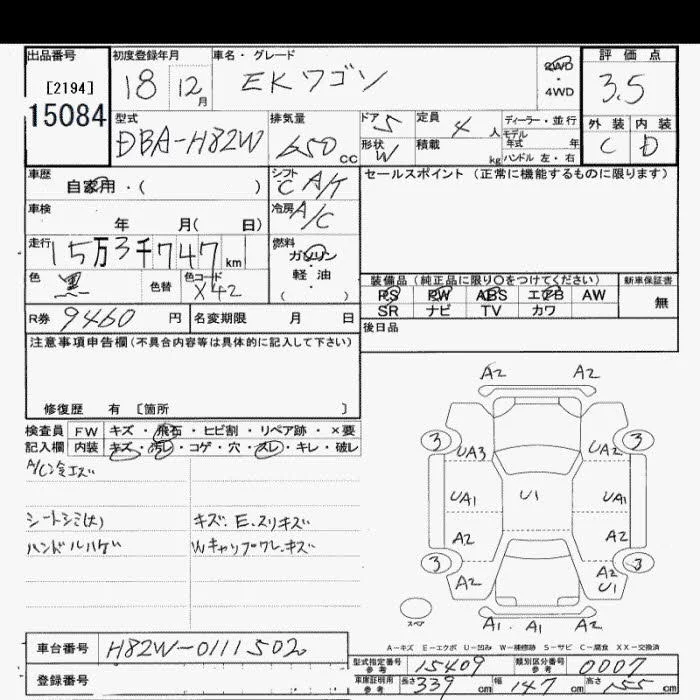 出品番号 初度登録年月 車名・グレード 評価点
[2194] 18 12月 EKワゴン 2WD・4WD 3.5
15084
型式 排気量 ドア 5 定員 4人 ディーラー・並行 外装 内装
DBA-H82W 650cc 形状 W 積載 kg モデル年式 年 C D
ハンドル 左・右
車歴 シフト セールスポイント (正常に機能するものに限ります)
自家用・( ) C A/T
車検 冷房 A/C
年 月( 日)
走行 燃料
15万3千747km ガソリン・軽・油
色 色替 色コード ( ) 装備品 (純正品に限り○をつけてください) 新車保証書
黒 X42 PS PW ABS エアB AW 無
R券 9460円 名変期限 月 日 SR ナビ TV カワ
後日品
注意事項申告欄(不具合内容等は具体的に記入して下さい)
修復歴 有 [箇所 ]
検査員 FW キズ・飛石・ヒビ割・リペア跡・×要
記入欄 内装 キズ・汚レ・コゲ・穴・スレ・キレ・破レ
シートシミ(大) キズ.E.スリキズ
ハンドルハゲ Wキャップワレ.キズ
A2 A2
3 3
UA3 UA2
UA1 U1 UA1
A2 A2
3 3
A2 A2
U1
スペア A1 A1 A2
A-キズ E-エクボ U-凹み W-補修跡 S-サビ C-腐食 XX-交換済
車台番号 H82W-0111502
型式指定番号 参考 15409 類別区分番号 参考 0007
登録番号 車庫証明用 参考 長さ 339cm 幅 147cm 高さ 155cm